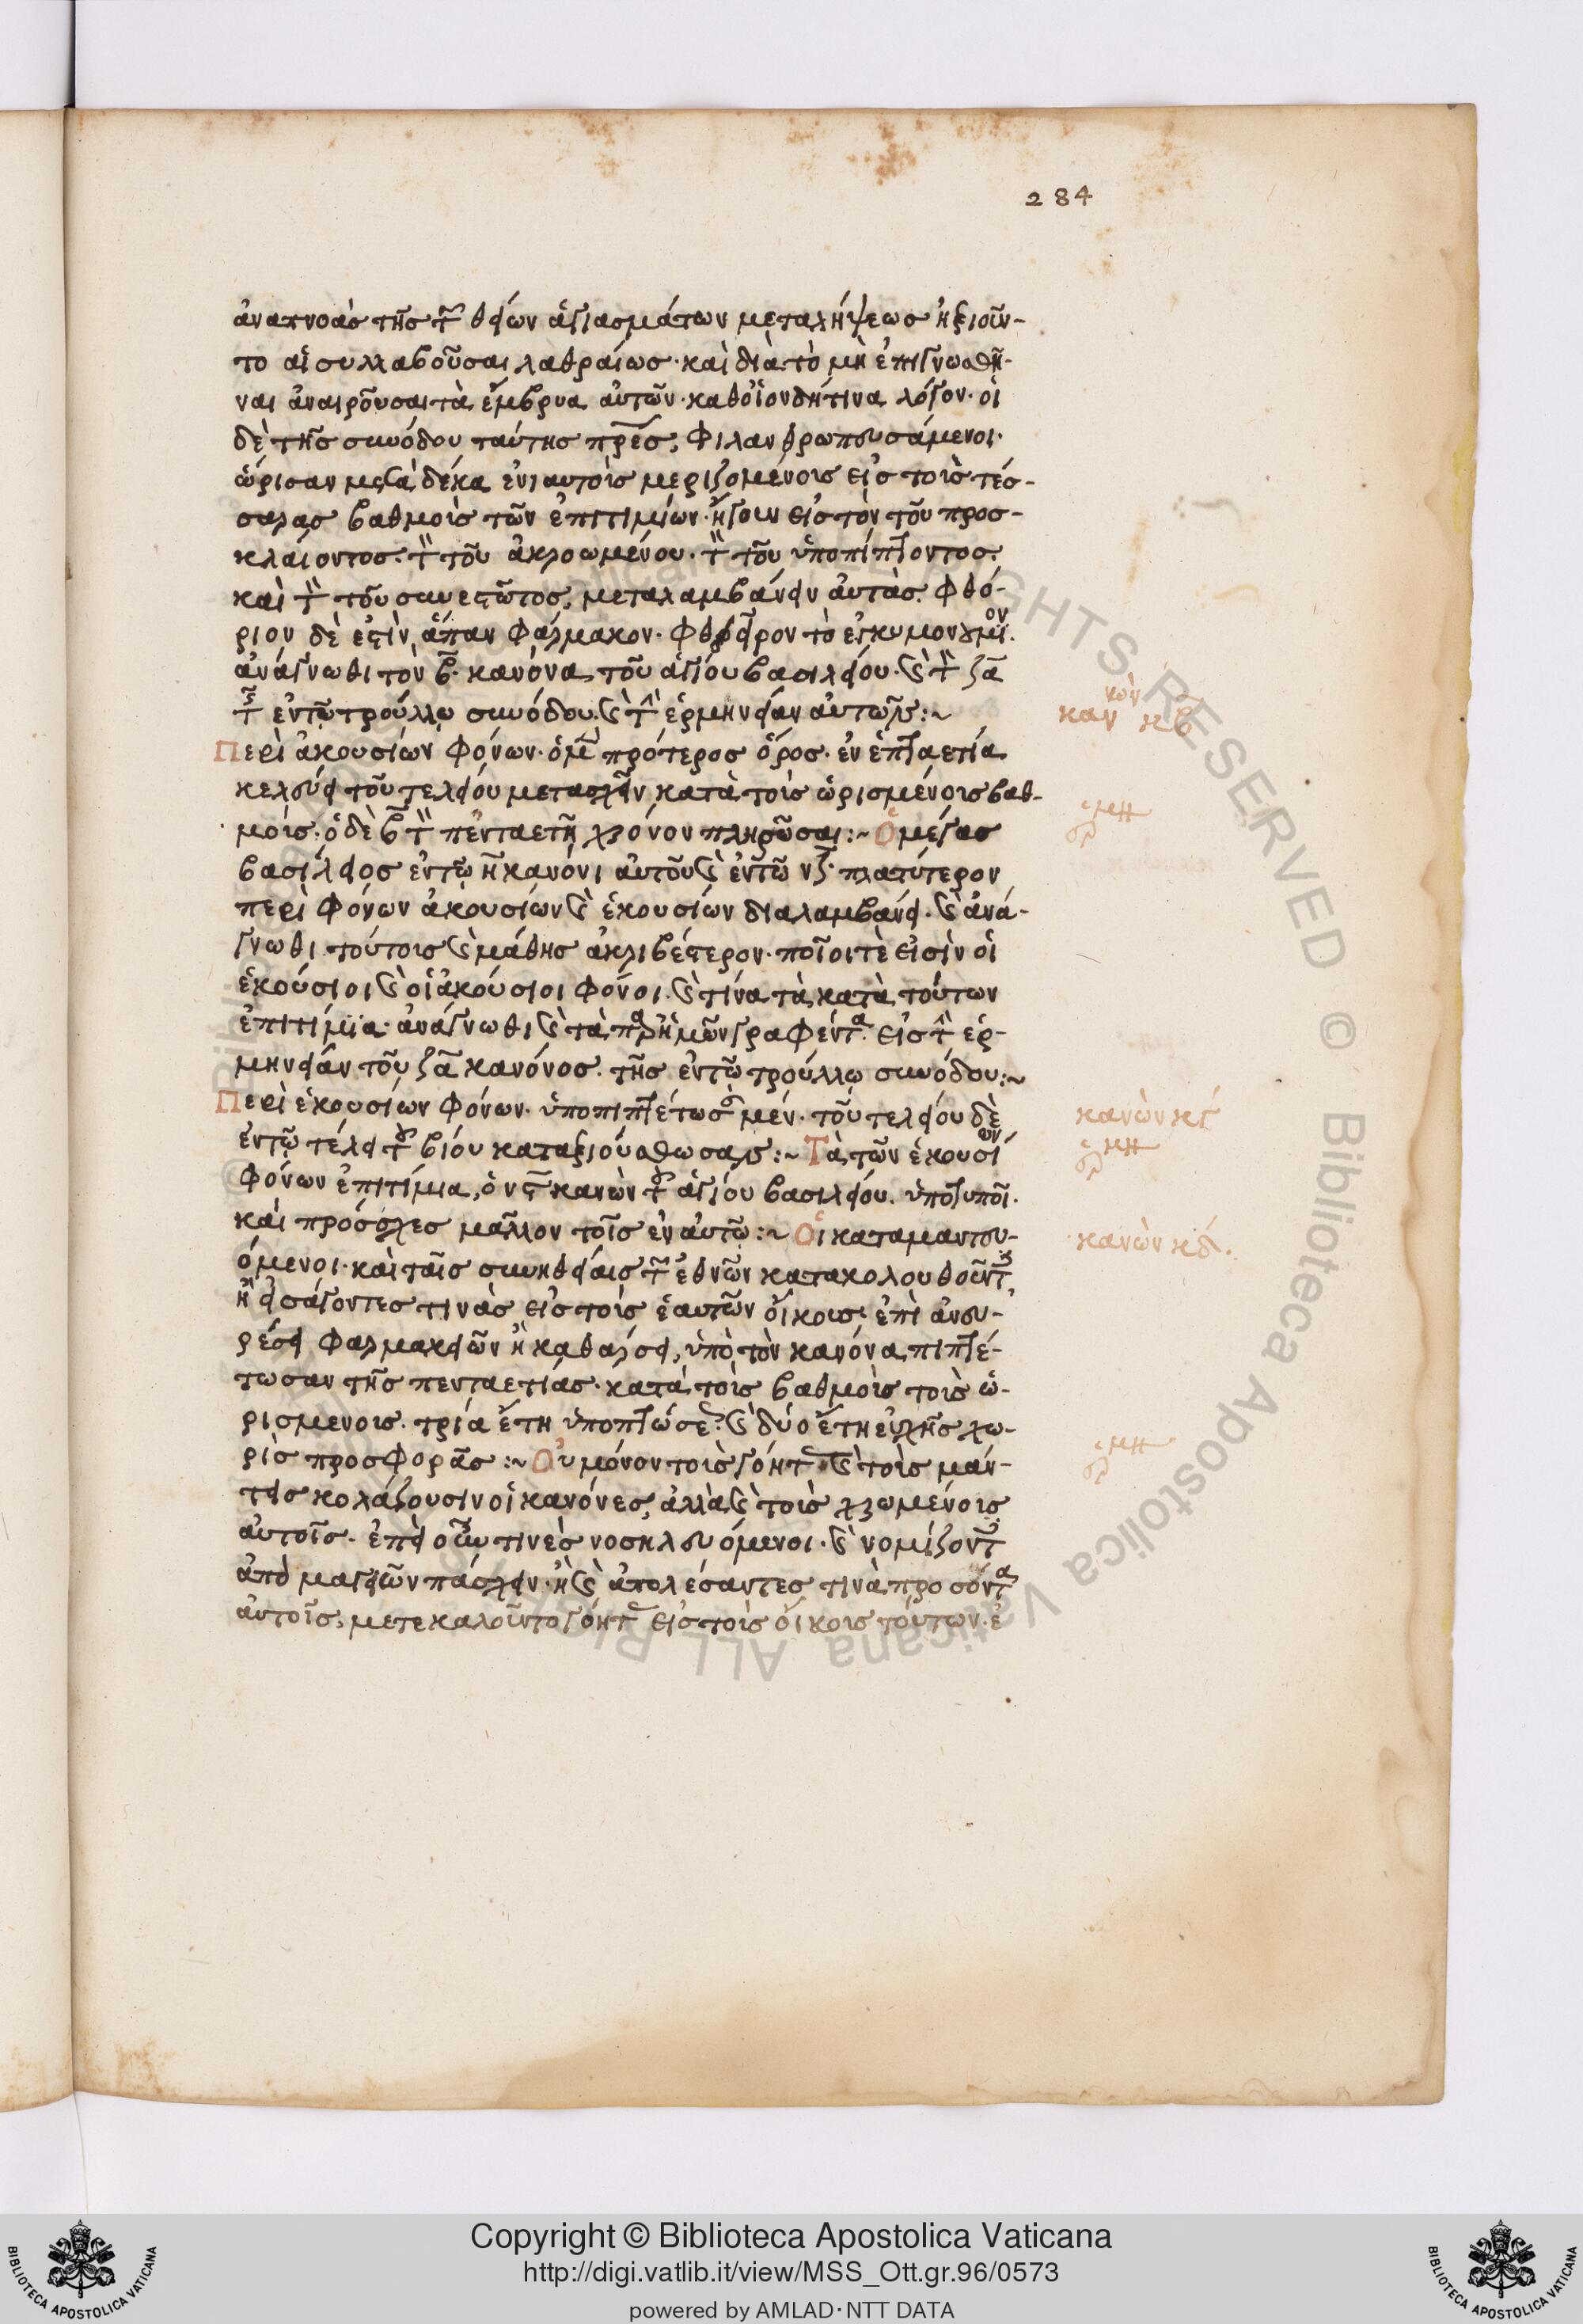 284
ἀναπνοὰς τῆς τῶν θείων ἁγιασμάτων μεταλήψεως ἠξιοῦν-
το αἱ συλλαβοῦσαι λαθραίως· καὶ διὰ τὸ μὴ ἐπιγνωσθῆ-
ναι ἀναιροῦσαι τὰ ἔμβρυα αὐτῶν· καθ' οἷον δή τινα λόγον· οἱ
δὲ τῆς συνόδου ταύτης πρες, φιλανθρωπευσάμενοι·
ὥρισαν μετὰ δέκα ἐνιαυτοὺς μεριζομένους εἰς τοὺς τέσ-
σαρας βαθμοὺς τῶν ἐπιτιμίων· ἤγουν εἰς τὸν τοῦ προσ-
κλαίοντος· τὸν τοῦ ἀκροωμένου· τὸν τοῦ ὑποπίπτοντος·
καὶ τὸν τοῦ συνεστῶτος, μεταλαμβάνειν αὐτάς· φθό-
ριον δὲ ἐστὶν ἅπαν φάρμακον· φθεῖρον τὸ ἐγκυμονούμενον·
ἀνάγνωθι τὸν β· κανόνα τοῦ ἁγίου βασιλείου· καὶ τὸν ϟα
τῆς ἐν τῷ τρούλλῳ συνόδου· καὶ τὴν ἑρμηνείαν αὐτῶν:~
κανὼν κβ
Περὶ ἀκουσίων φόνων· ὁ μὲν πρότερος ὅρος· ἐν ἑπταετίᾳ
κελεύει τοῦ τελείου μετασχεῖν κατὰ τοὺς ὡρισμένους βαθ-
μούς· ὁ δὲ β τὸν πενταετῆ χρόνον πληρῶσαι:~ Ὁ μέγας
ἑρμη
βασίλειος ἐν τῷ η κανόνι αὐτοῦ καὶ ἐν τῷ νζ· πλατύτερον
περὶ φόνων ἀκουσίων καὶ ἑκουσίων διαλαμβάνει· καὶ ἀνά-
γνωθι τούτους καὶ μάθῃς ἀκριβέστερον· ποῖοι τέ εἰσιν οἱ
ἑκούσιοι καὶ οἱ ἀκούσιοι φόνοι· καὶ τίνα τὰ κατὰ τούτων
ἐπιτίμια· ἀνάγνωθι καὶ τὰ παρ' ἡμῶν γραφέντα· εἰς τὴν ἑρ-
μηνείαν τοῦ ϟα κανόνος· τῆς ἐν τῷ τρούλλῳ συνόδου:~
Περὶ ἑκουσίων φόνων· ὑποπιπτέτωσαν μέν· τοῦ τελείου δὲ
κανὼν κγ
ἐν τῷ τέλει τοῦ βίου καταξιούσθωσαν:~ Τὰ τῶν ἑκουσίων
ἑρμη
φόνων ἐπιτίμια, ὁ νϛ κανὼν τοῦ ἁγίου βασιλείου· ὑποτυποῖ·
καὶ πρόσχες μᾶλλον τοῖς ἐν αὐτῷ:~ Οἱ καταμαντευ-
κανὼν κδ.
όμενοι· καὶ ταῖς συνηθείαις τῶν ἐθνῶν κατακολουθοῦντες,
ἢ εἰσάγοντες τινὰς εἰς τοὺς ἑαυτῶν οἴκους· ἐπὶ ἀνευ-
ρέσει φαρμακειῶν ἢ καθάρσει, ὑπὸ τὸν κανόνα πιπτέ-
τωσαν τῆς πενταετίας· κατὰ τοὺς βαθμοὺς τοὺς ὡ-
ρισμένους· τρία ἔτη ὑποπτώσεως· καὶ δύο ἔτη εὐχῆς χω-
ρὶς προσφορᾶς:~ Οὐ μόνον τοὺς γόητας καὶ τοὺς μάν-
ἑρμη
τεις κολάζουσιν οἱ κανόνες, ἀλλὰ καὶ τοὺς χρωμένους
αὐτοῖς· ἐπεὶ οὖν τινὲς νοσηλευόμενοι· καὶ νομίζοντες
ἀπὸ μαγειῶν πάσχειν· ἢ καὶ ἀπολέσαντες τινὰ προσόντα
αὐτοῖς, μετεκαλοῦντο γόητας εἰς τοὺς οἴκους τούτων· ἐ
Copyright © Biblioteca Apostolica Vaticana
http://digi.vatlib.it/view/MSS_Ott.gr.96/0573
powered by AMLAD·NTT DATA
BIBLIOTECA APOSTOLICA VATICANA
BIBLIOTECA APOSTOLICA VATICANA